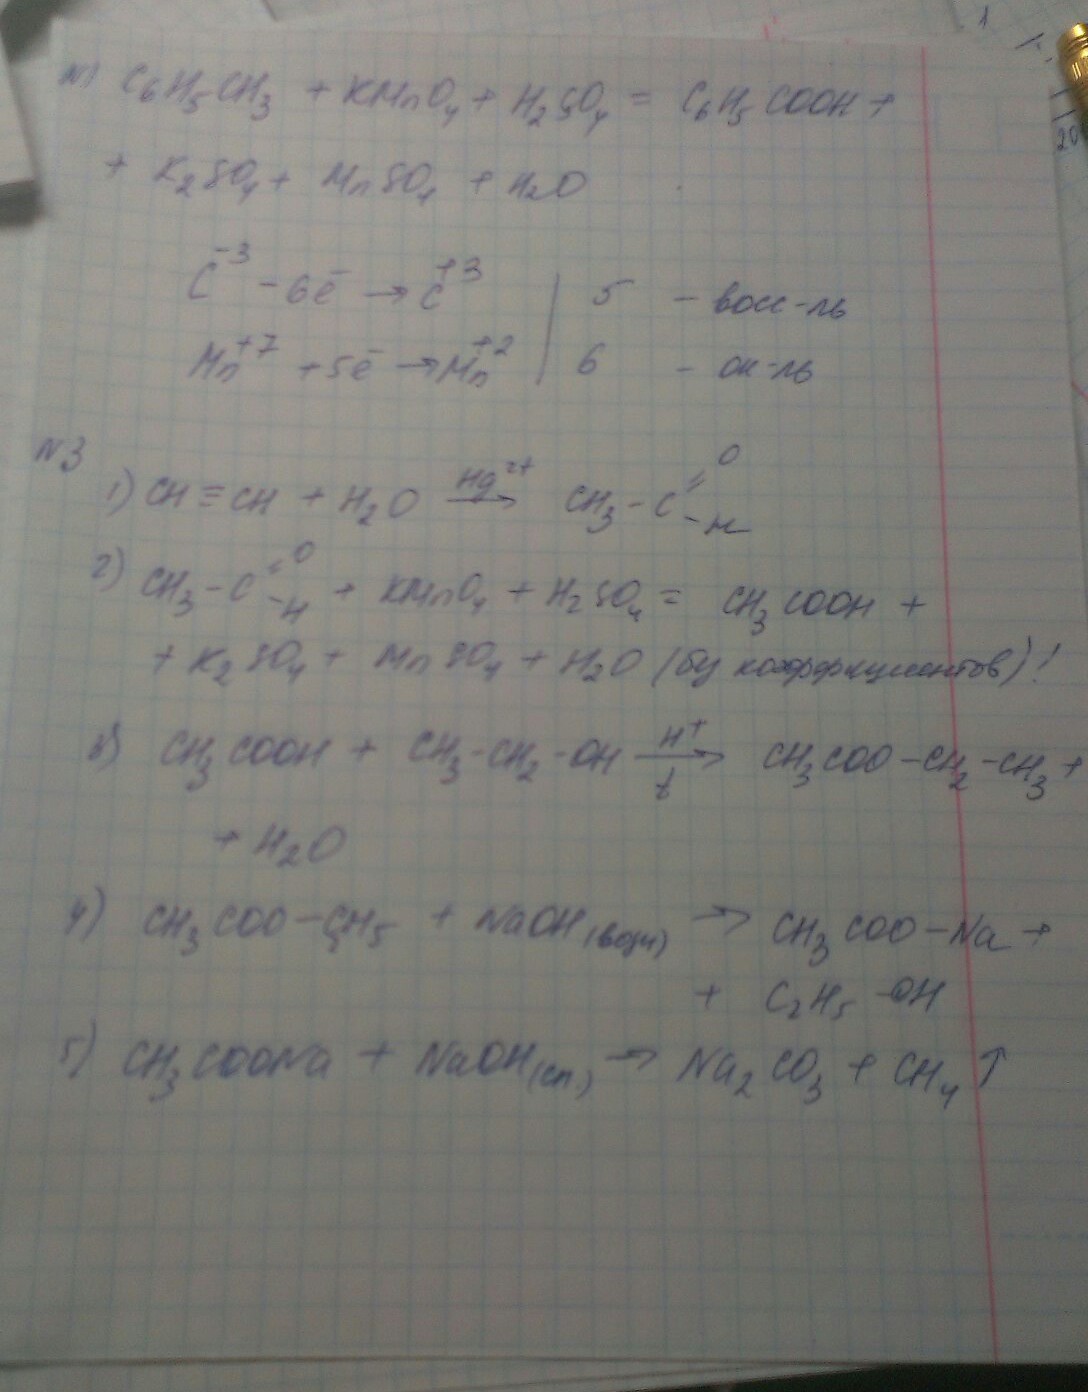 N1) C6H5CH3 + KMnO4 + H2SO4 = C6H5COOH +
+ K2SO4 + MnSO4 + H2O
C⁻³ - 6ē → C⁺³ | 5 - восс-ль
Mn⁺⁷ + 5ē → Mn⁺² | 6 - ок-ль
N3
1) CH ≡ CH + H2O Hg²⁺→ CH3 - C =O -H
2) CH3 - C =O -H + KMnO4 + H2SO4 = CH3COOH +
+ K2SO4 + MnSO4 + H2O (без коэффициентов)!
3) CH3COOH + CH3-CH2-OH H⁺→ t CH3COO-CH2-CH3 +
+ H2O
4) CH3COO-C2H5 + NaOH(водн) → CH3COO-Na +
+ C2H5-OH
5) CH3COONa + NaOH(сп.) → Na2CO3 + CH4↑
1
20